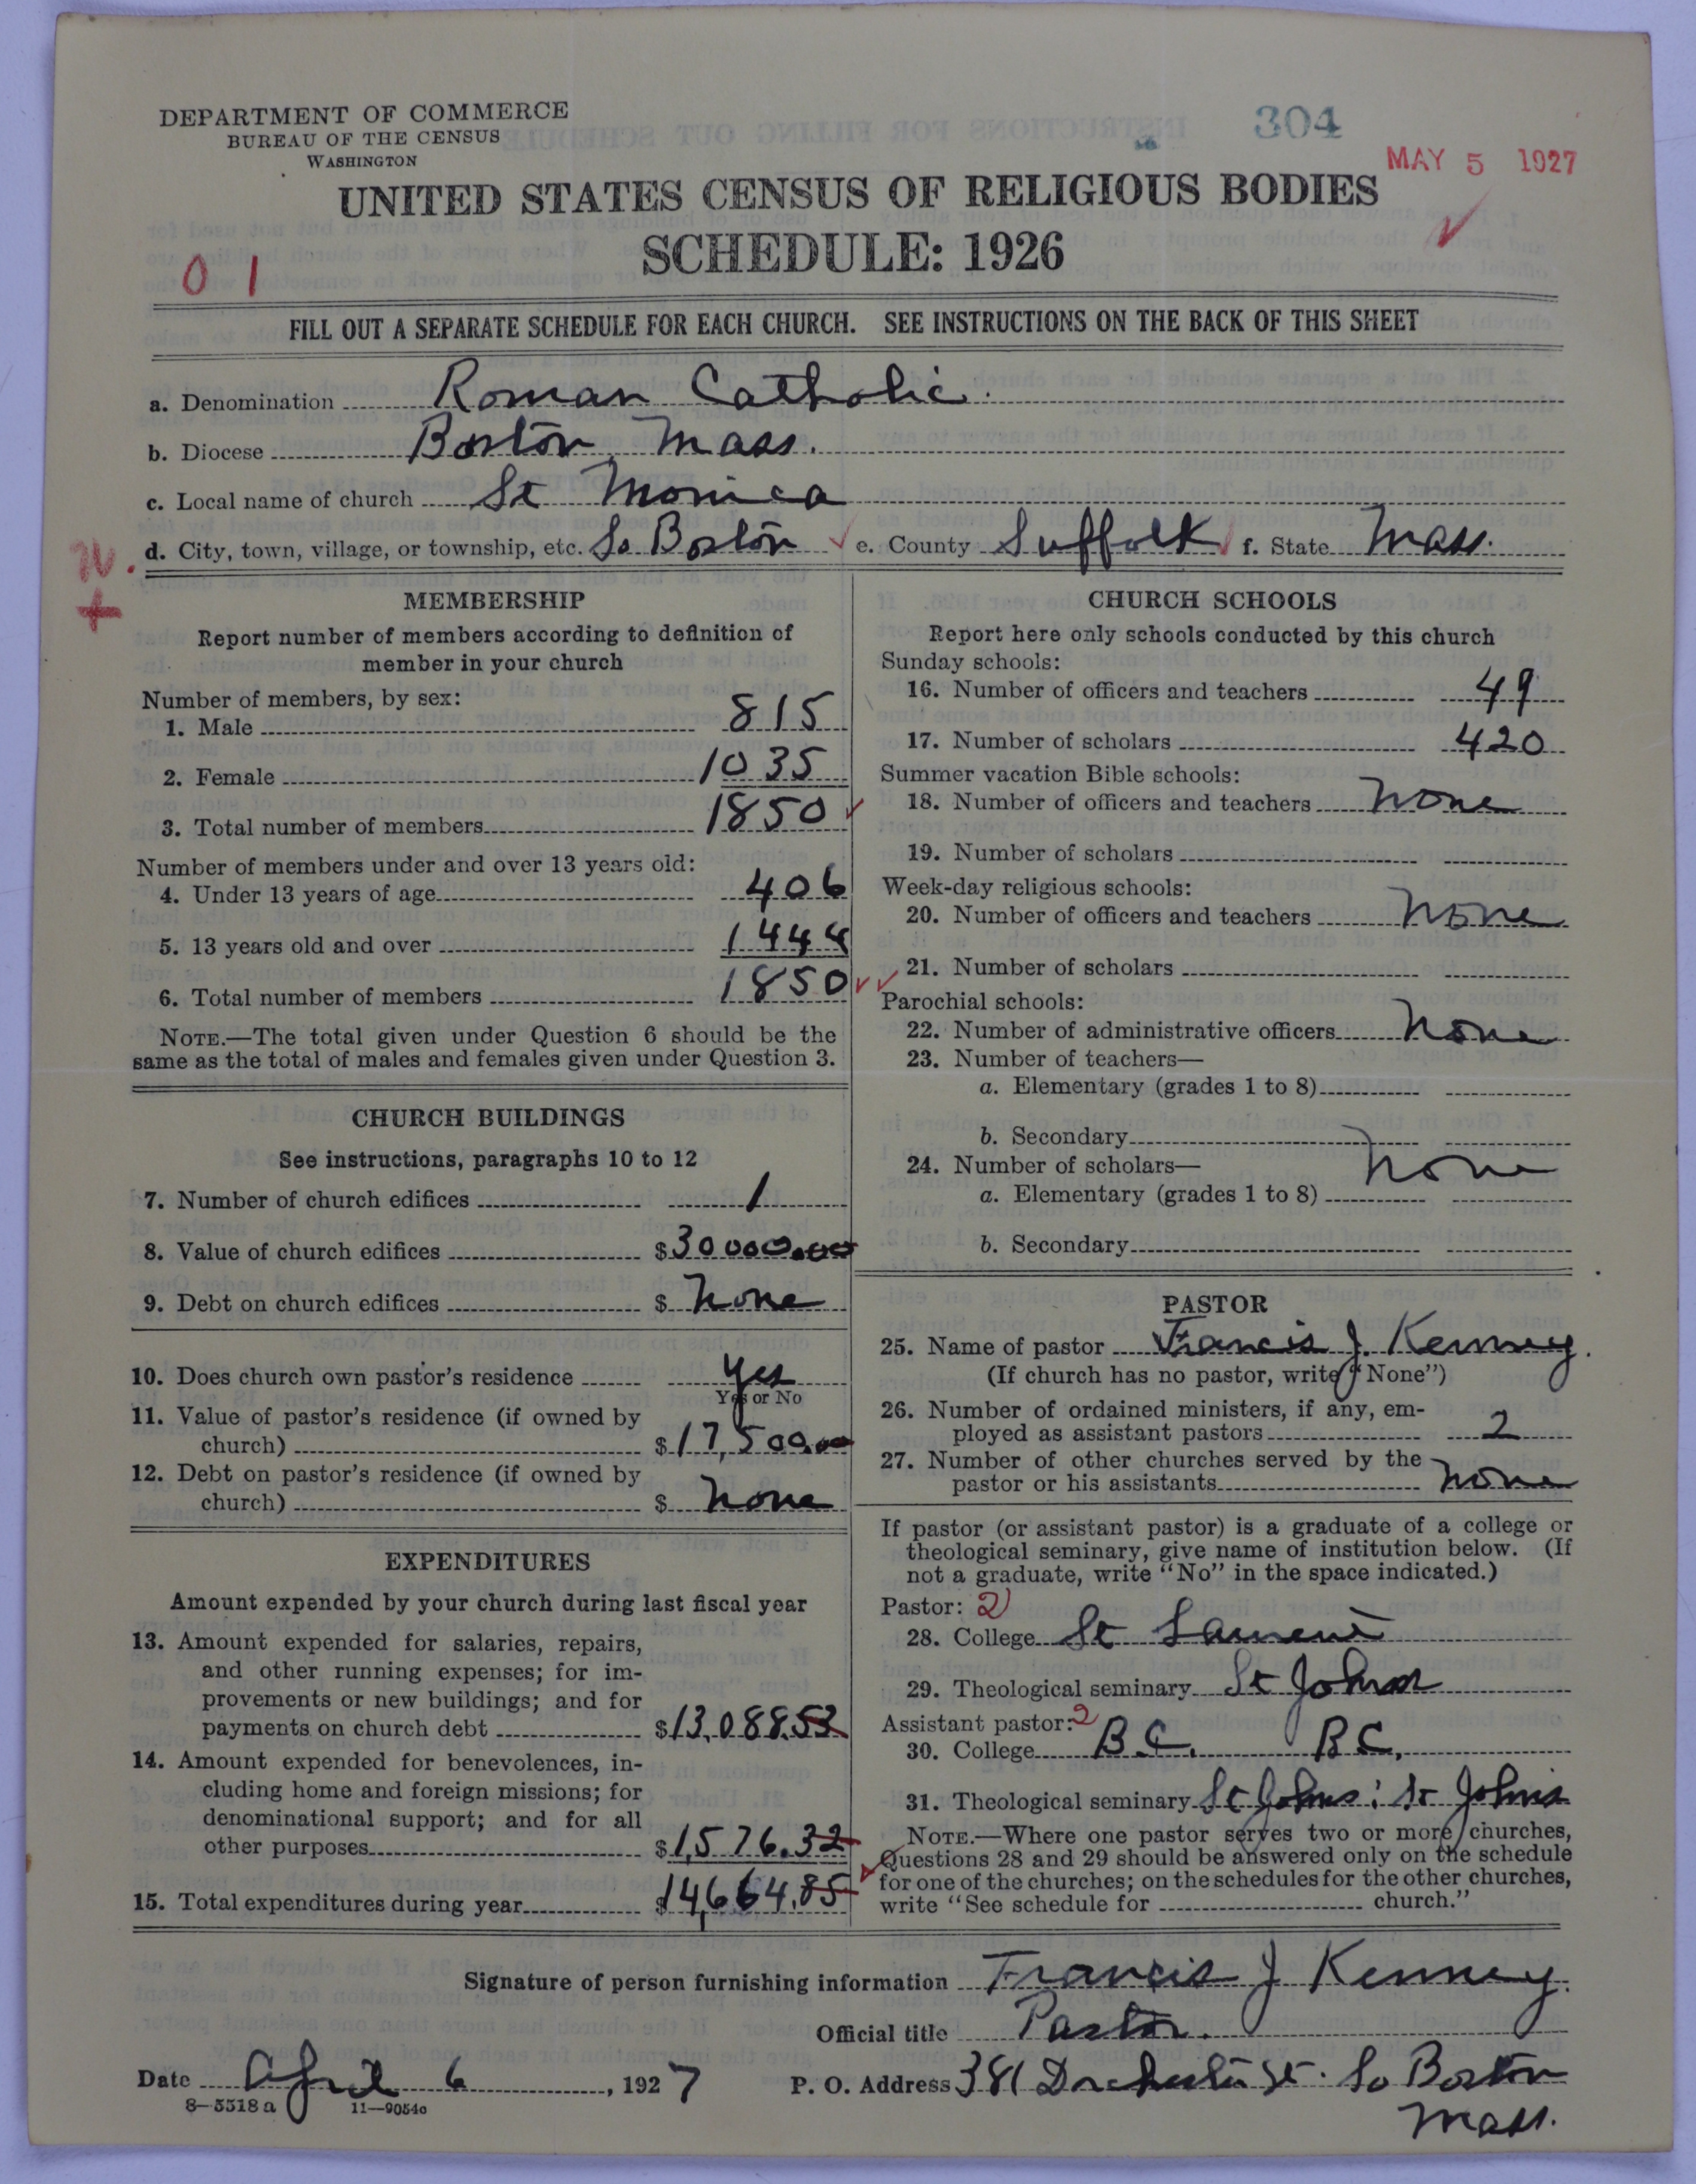 DEPARTMENT OF COMMERCE
BUREAU OF THE CENSUS
WASHINGTON
304
MAY 5 1927
UNITED STATES CENSUS OF RELIGIOUS BODIES
SCHEDULE: 1926
0 1
FILL OUT A SEPARATE SCHEDULE FOR EACH CHURCH. SEE INSTRUCTIONS ON THE BACK OF THIS SHEET
a. Denomination Roman Catholic.
b. Diocese Boston Mass.
c. Local name of church St Monica
d. City, town, village, or township, etc. So Boston e. County Suffolk f. State Mass.
MEMBERSHIP
Report number of members according to definition of
member in your church
Number of members, by sex:
1. Male 815
2. Female 1035
3. Total number of members 1850
Number of members under and over 13 years old:
4. Under 13 years of age 406
5. 13 years old and over 1444
6. Total number of members 1850
NOTE.—The total given under Question 6 should be the
same as the total of males and females given under Question 3.
CHURCH BUILDINGS
See instructions, paragraphs 10 to 12
7. Number of church edifices 1
8. Value of church edifices $30000.00
9. Debt on church edifices $ None
10. Does church own pastor's residence Yes
Yes or No
11. Value of pastor's residence (if owned by
church) $17,500.00
12. Debt on pastor's residence (if owned by
church) $ None
EXPENDITURES
Amount expended by your church during last fiscal year
13. Amount expended for salaries, repairs,
and other running expenses; for im-
provements or new buildings; and for
payments on church debt $13,088.53
14. Amount expended for benevolences, in-
cluding home and foreign missions; for
denominational support; and for all
other purposes $1,576.32
15. Total expenditures during year $14,664.85
CHURCH SCHOOLS
Report here only schools conducted by this church
Sunday schools:
16. Number of officers and teachers 49
17. Number of scholars 420
Summer vacation Bible schools:
18. Number of officers and teachers None
19. Number of scholars
Week-day religious schools:
20. Number of officers and teachers None
21. Number of scholars
Parochial schools:
22. Number of administrative officers None
23. Number of teachers—
a. Elementary (grades 1 to 8)
b. Secondary
24. Number of scholars— None
a. Elementary (grades 1 to 8)
b. Secondary
PASTOR
25. Name of pastor Francis J. Kenney.
(If church has no pastor, write "None")
26. Number of ordained ministers, if any, em-
ployed as assistant pastors 2
27. Number of other churches served by the
pastor or his assistants None
If pastor (or assistant pastor) is a graduate of a college or
theological seminary, give name of institution below. (If
not a graduate, write "No" in the space indicated.)
Pastor: 2
28. College St
29. Theological seminary St Johns
Assistant pastor: 2
30. College B.C. B.C.
31. Theological seminary St Johns: St Johns
NOTE.—Where one pastor serves two or more churches,
Questions 28 and 29 should be answered only on the schedule
for one of the churches; on the schedules for the other churches,
write "See schedule for church."
Signature of person furnishing information Francis J Kenney.
Official title Pastor.
Date April 6, 1927 P. O. Address 381 Dorchester St. So Boston
Mass.
8—5518 a 11—9054c